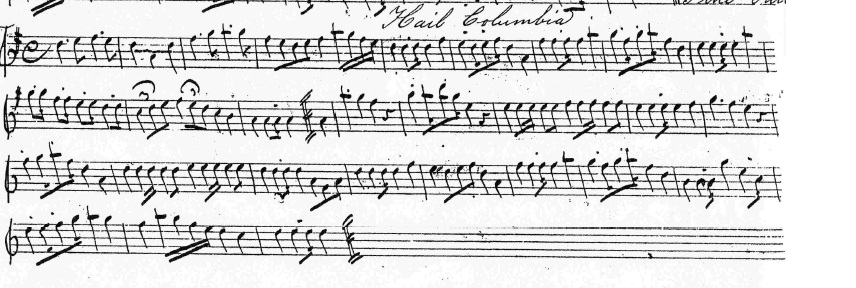 Hail Columbia